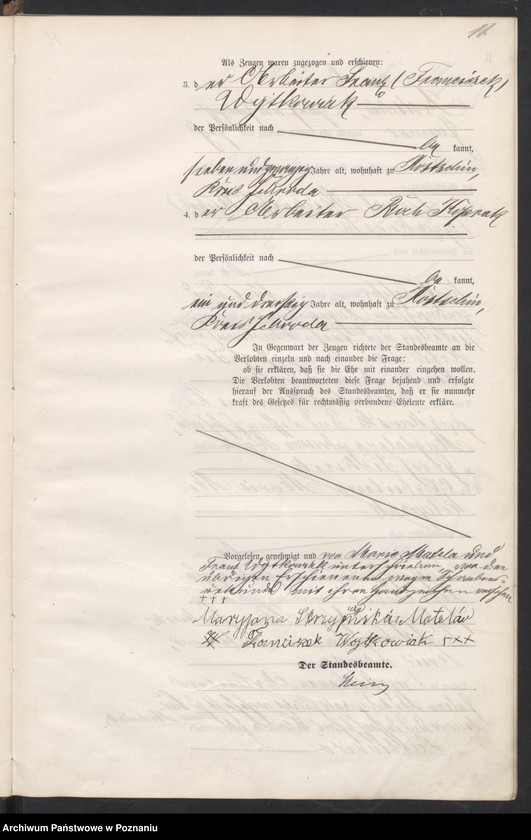 Als Zeugen waren zugezogen und erschienen:
3. der Arbeiter Franz (Franciszek)
Wojtkowiak
der Persönlichkeit nach
be kannt,
sieben und zwanzig Jahre alt, wohnhaft zu
Kreis Schroda
4. der Arbeiter Roch
der Persönlichkeit nach
be kannt,
ein und dreißig Jahre alt, wohnhaft zu
Kreis Schroda
In Gegenwart der Zeugen richtete der Standesbeamte an die
Verlobten einzeln und nach einander die Frage:
ob sie erklären, daß sie die Ehe mit einander eingehen wollen.
Die Verlobten beantworteten diese Frage bejahend und erfolgte
hierauf der Ausspruch des Standesbeamten, daß er sie nunmehr
kraft des Gesetzes für rechtmäßig verbundene Eheleute erkläre.
Vorgelesen, genehmigt und von Maria Matela und
Franz Wojtkowiak unterschrieben, von den
übrigen Erschienenen wegen Schreibens-
mit ihren Handzeichen versehen
+++
Maryjanna Matela
Franciszek Wojtkowiak +++
Der Standesbeamte.
Archiwum Państwowe w Poznaniu